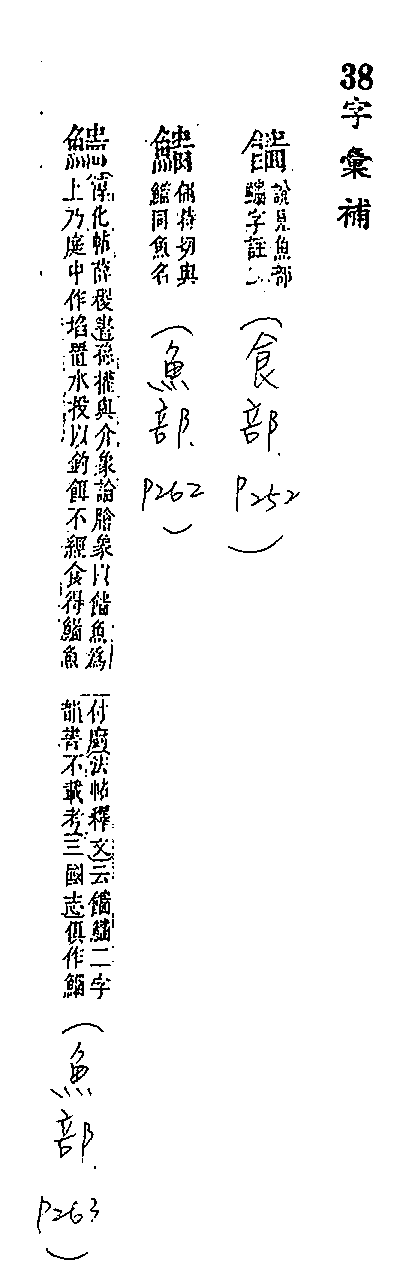 38字彙補
說見魚部
字註
(食部. P252)
切與
同魚名
(魚部. P262)
淳化帖薛稷書孫權與介象論膾象以魚為
上乃庭中作埳置水投以釣餌不經食得鯔魚
付廚法帖釋文云二字
韻書不載考三國志俱作鯔
(魚部. P263)